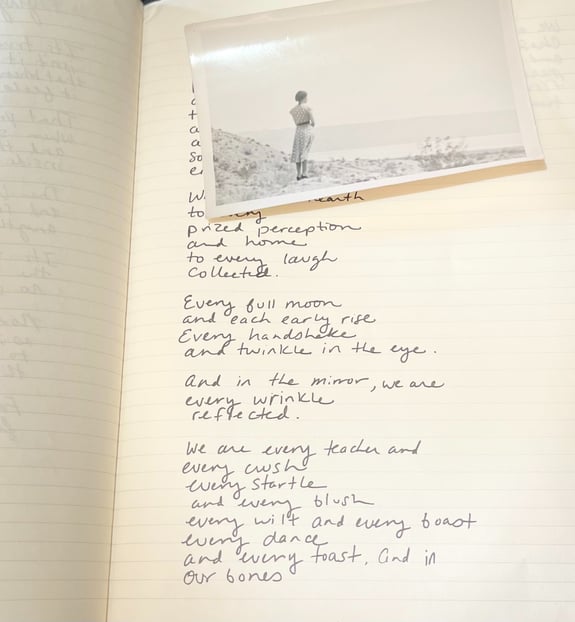 So
W earth
to
prized perception
and home
to every laugh
Collected.
Every full moon
and each early rise
Every handshake
and twinkle in the eye.
And in the mirror, we are
every wrinkle
reflected.
We are every teacher and
every crush
every startle
and every blush
every wilt and every boast
every dance
and every toast, and in
our bones